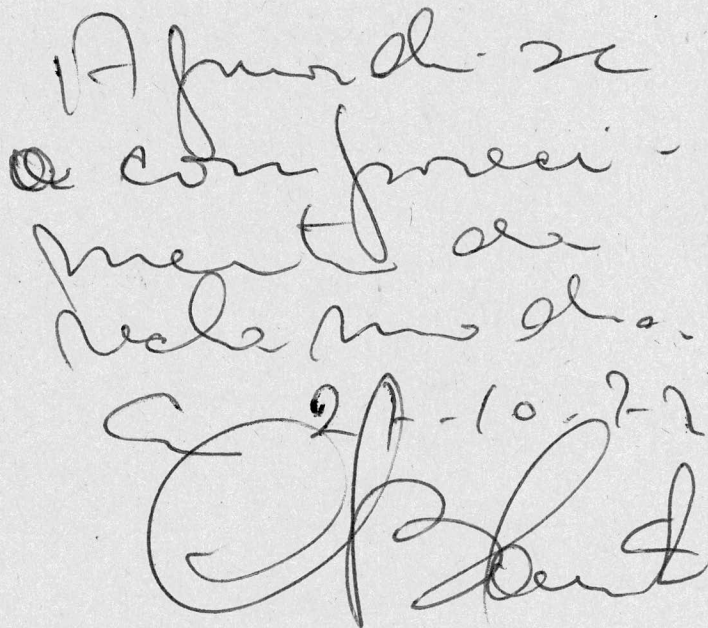 Aguarde-se
o compareci-
mento da
reclamada.
Em